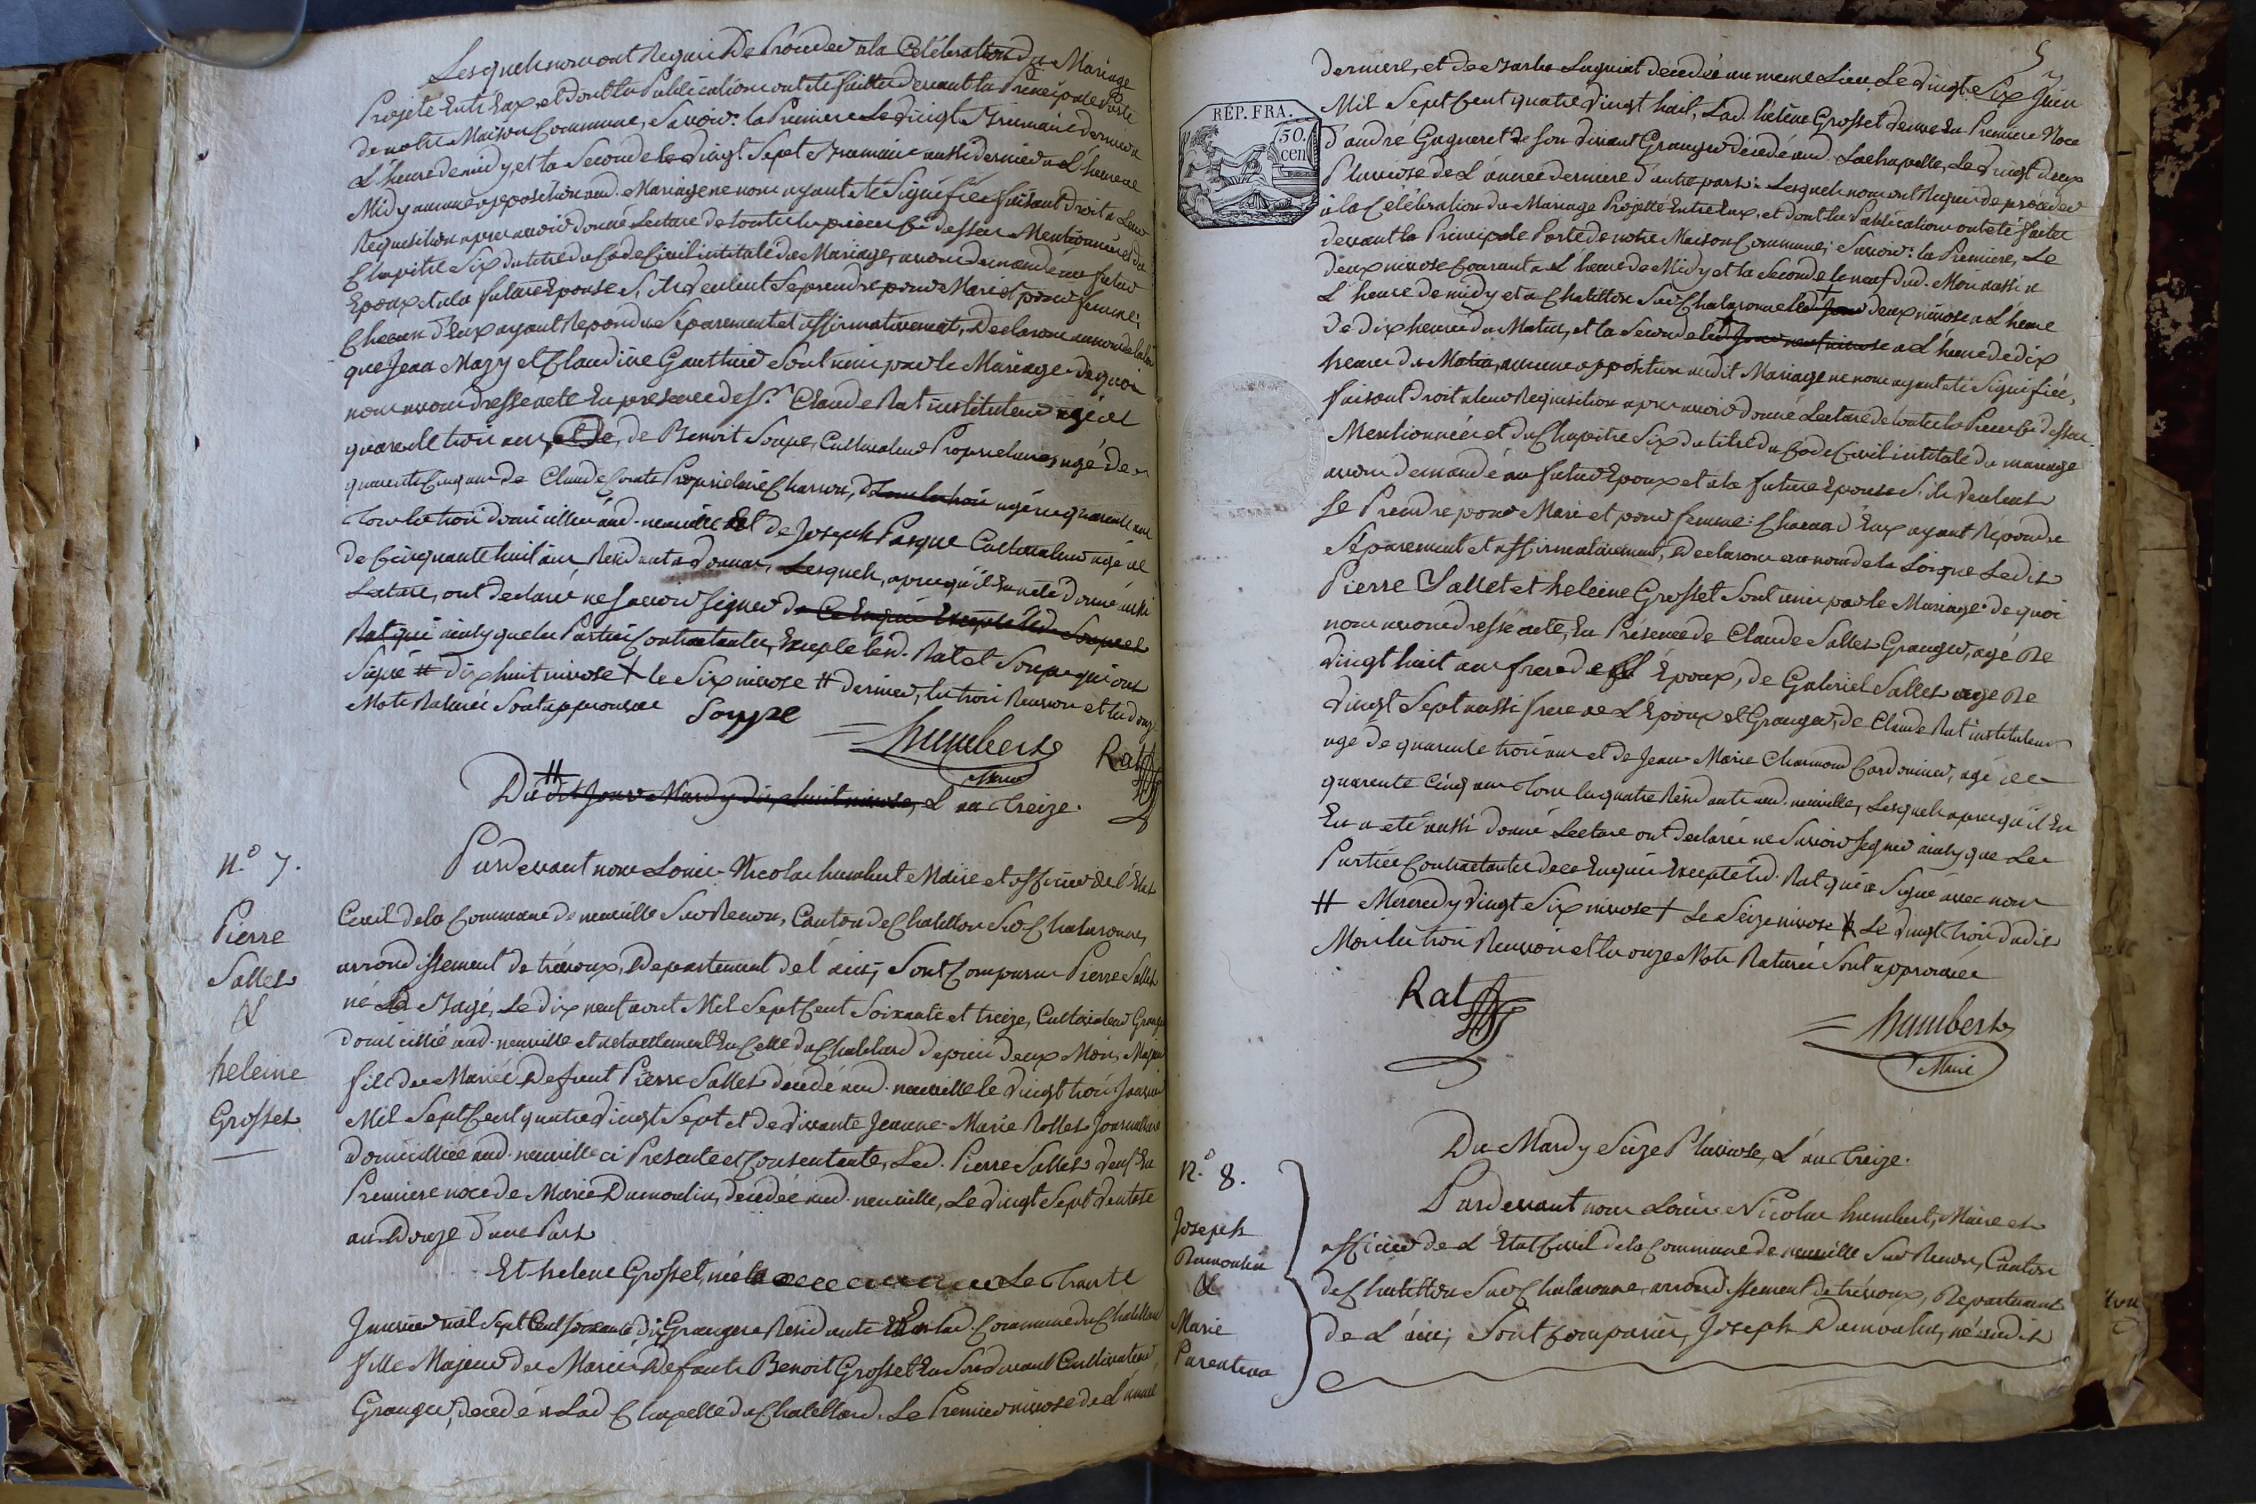 Lesquels nous ont Requis De Proceder a la Célébration du Mariage
Projeté Entr'Eux et dont les Publications ont été faittes devant la Principale Porte
de notre Maison Commune, Savoir: la Premiere Le vingt Brumaire dernier a
L'heure de midy, et la Seconde le vingt Sept Brumaire aussi dernier a L'heure de
Midy aucune oposition aud. Mariage ne nous ayant été Signifiée faisant droit a Leur
Requisition apres avoir donné Lecture de toutes les pieces Ci dessus Mentionnées et du
Chapitre Six du titre du Code Civil intitulé du Mariage, avons demandé au futur
Epoux et a la future Epouse S'ils veulent Se prendre pour Mari et pour femme;
Chacun d'Eux ayant Repondu Séparement et affirmativement, Declarons au nom de la loi
que Jean Mazy et Claudine Gauthier Sont unis par le Mariage. de quoi
nous avons dressé acte En presence de Sr. Claude Rat instituteur agé de
quarente trois ans, de Benoit Soupe, Cultivateur Proprietaire agé de
quarente Cinq ans de Claude Proprietaire Charron, agé de quarente ans
Tous les trois domiciliés aud. neuville Et de Joseph Pasque Cultivateur agé de
de Cinquante huit ans Resident a , Lesquels, apres qu'il En a été donné aussi
Lecture, ont declaré ne Savoir Signer de Ce Enquis Excepté led. Soupe et
Rat qui ainsy que les Parties Contractantes, Excepté led. Rat et Soupe qui ont
Signé # dix huit nivose + le Six nivose # dernier, les trois Renvois et les douze
Mots Raturés Sont approuvés Soupe
humbert Rat
Maire
Du # dit Jour Mardy dix huit nivose, L'an Treize.
N.° 7.
Pardevant nous Louis Nicolas humbert Maire et officier de l'Etat
Pierre
Sallet
&
heleine
Grosset
Civil de la Commune de neuville Sur Renon, Canton de Chatillon Sur Chalaronne,
arrondissement de trévoux, Departement de l'ain; Sont Comparus Pierre Sallet
né à Bagé, Le dix neuf aout Mil Sept Cent Soixante et treize, Cultivateur Granger
domicilié aud. neuville et actuellement En Celle du Chatelard depuis deux Mois, Majeur
fils des Mariés Defunt Pierre Sallet décédé aud. neuville le vingt trois Janvier
Mil Sept Cent quatre vingt Sept et de vivante Jeanne-Marie Rollet Journalliere
domiciliée aud. neuville ci Presente et Consentante, Led. Pierre Sallet veuf En
Premiere noce de Marie Dumoulin, décédée aud. neuville, Le vingt Sept ventose
an Douze d'une Part
Et helene Grosset, née Le Trente
Janvier mil Sept Cent Soixante dix Grangere Residante En Lad. Commune du Chatellard
fille Majeure des Mariés Defunts Benoit Grosset En Son vivant Cultivateur
Granger, decedé a Lad Chapelle du Chatellard Le Premier nivose de L'année
5
RÉP. FRA.
50.
CEN
derniere, et de Marie Luquiat decedée au meme Lieu Le vingt Six Juin
Mil Sept Cent quatre vingt huit, Lad. héléne Grosset veuve En Premiere Noce
d'andré Gagneret de Son vivant Granger décedé aud. Lachapelle, Le vingt deux
Pluviose de L'année derniere d'autre part. Lesquels nous ont Requis de procéder
à la Célébration du Mariage Projetté Entre Eux, et dont les Publications ont été faites
devant la Principale Porte de notre Maison Commune; Savoir: la Premiere, Le
deux nivose Courant a L'heure de Midy et la Seconde le neuf dud. Mois aussi a
L'heure de midy et a Chatillon Sur Chalaronne led Jour deux nivose a L'heure
de dix heures du Matin, et la Seconde led Jour neuf nivose a L'heure de dix
heures du Matin, aucune opposition audit Mariage ne nous ayant été Signifiée,
faisant droit a leur Requisition apres avoir donné Lecture de toutes les Pieces Ci dessus
Mentionnées et du Chapitre Six du titre du Code Civil intitulé du mariage
avons demandé au futur Epoux et a la future Epouse S'ils veulent
Se Prendre pour Mari et pour femme: Chacun d'Eux ayant Repondu
Séparement et affirmativement, Declarons au nom de la Loi que Ledit
Pierre Sallet et heleine Grosset Sont unis par le Mariage. de quoi
nous avons dressé acte, En Présence de Claude Sallet Granger, agé de
vingt huit ans frere de L'Epoux, de Gabriel Sallet agé de
vingt Sept aussi frere de L'Epoux et Granger, de Claude Rat instituteur
agé de quarente trois ans et de Jean-Marie Charmond Cordonnier, agé de
quarente Cinq ans Tous les quatre Residants aud. neuville, Lesquels apres qu'il En
En a été aussi donné Lecture ont declaré ne Savoir Signer ainsy que Les
Parties Contractantes de ce Enquis Excepté led. Rat qui a Signé avec nous
# Mercredy vingt Six nivose + Le Seize nivose + Le vingt trois dudit
Mois les trois Renvois et les onze Mots Raturés Sont approuvés
Rat
humbert
Maire
Du Mardy Seize Pluviose, L'an Treize.
N.° 8.
Joseph
Dumoulin
&
Marie
Parentin
Pardevant nous Louis-Nicolas humbert, Maire et
officier de L'Etat Civil de la Commune de neuville Sur Renon, Canton
de Chatillon Sur Chalaronne, arrondissement de trévoux, Departement
de L'ain; Sont Comparus, Joseph Dumoulin, né audit